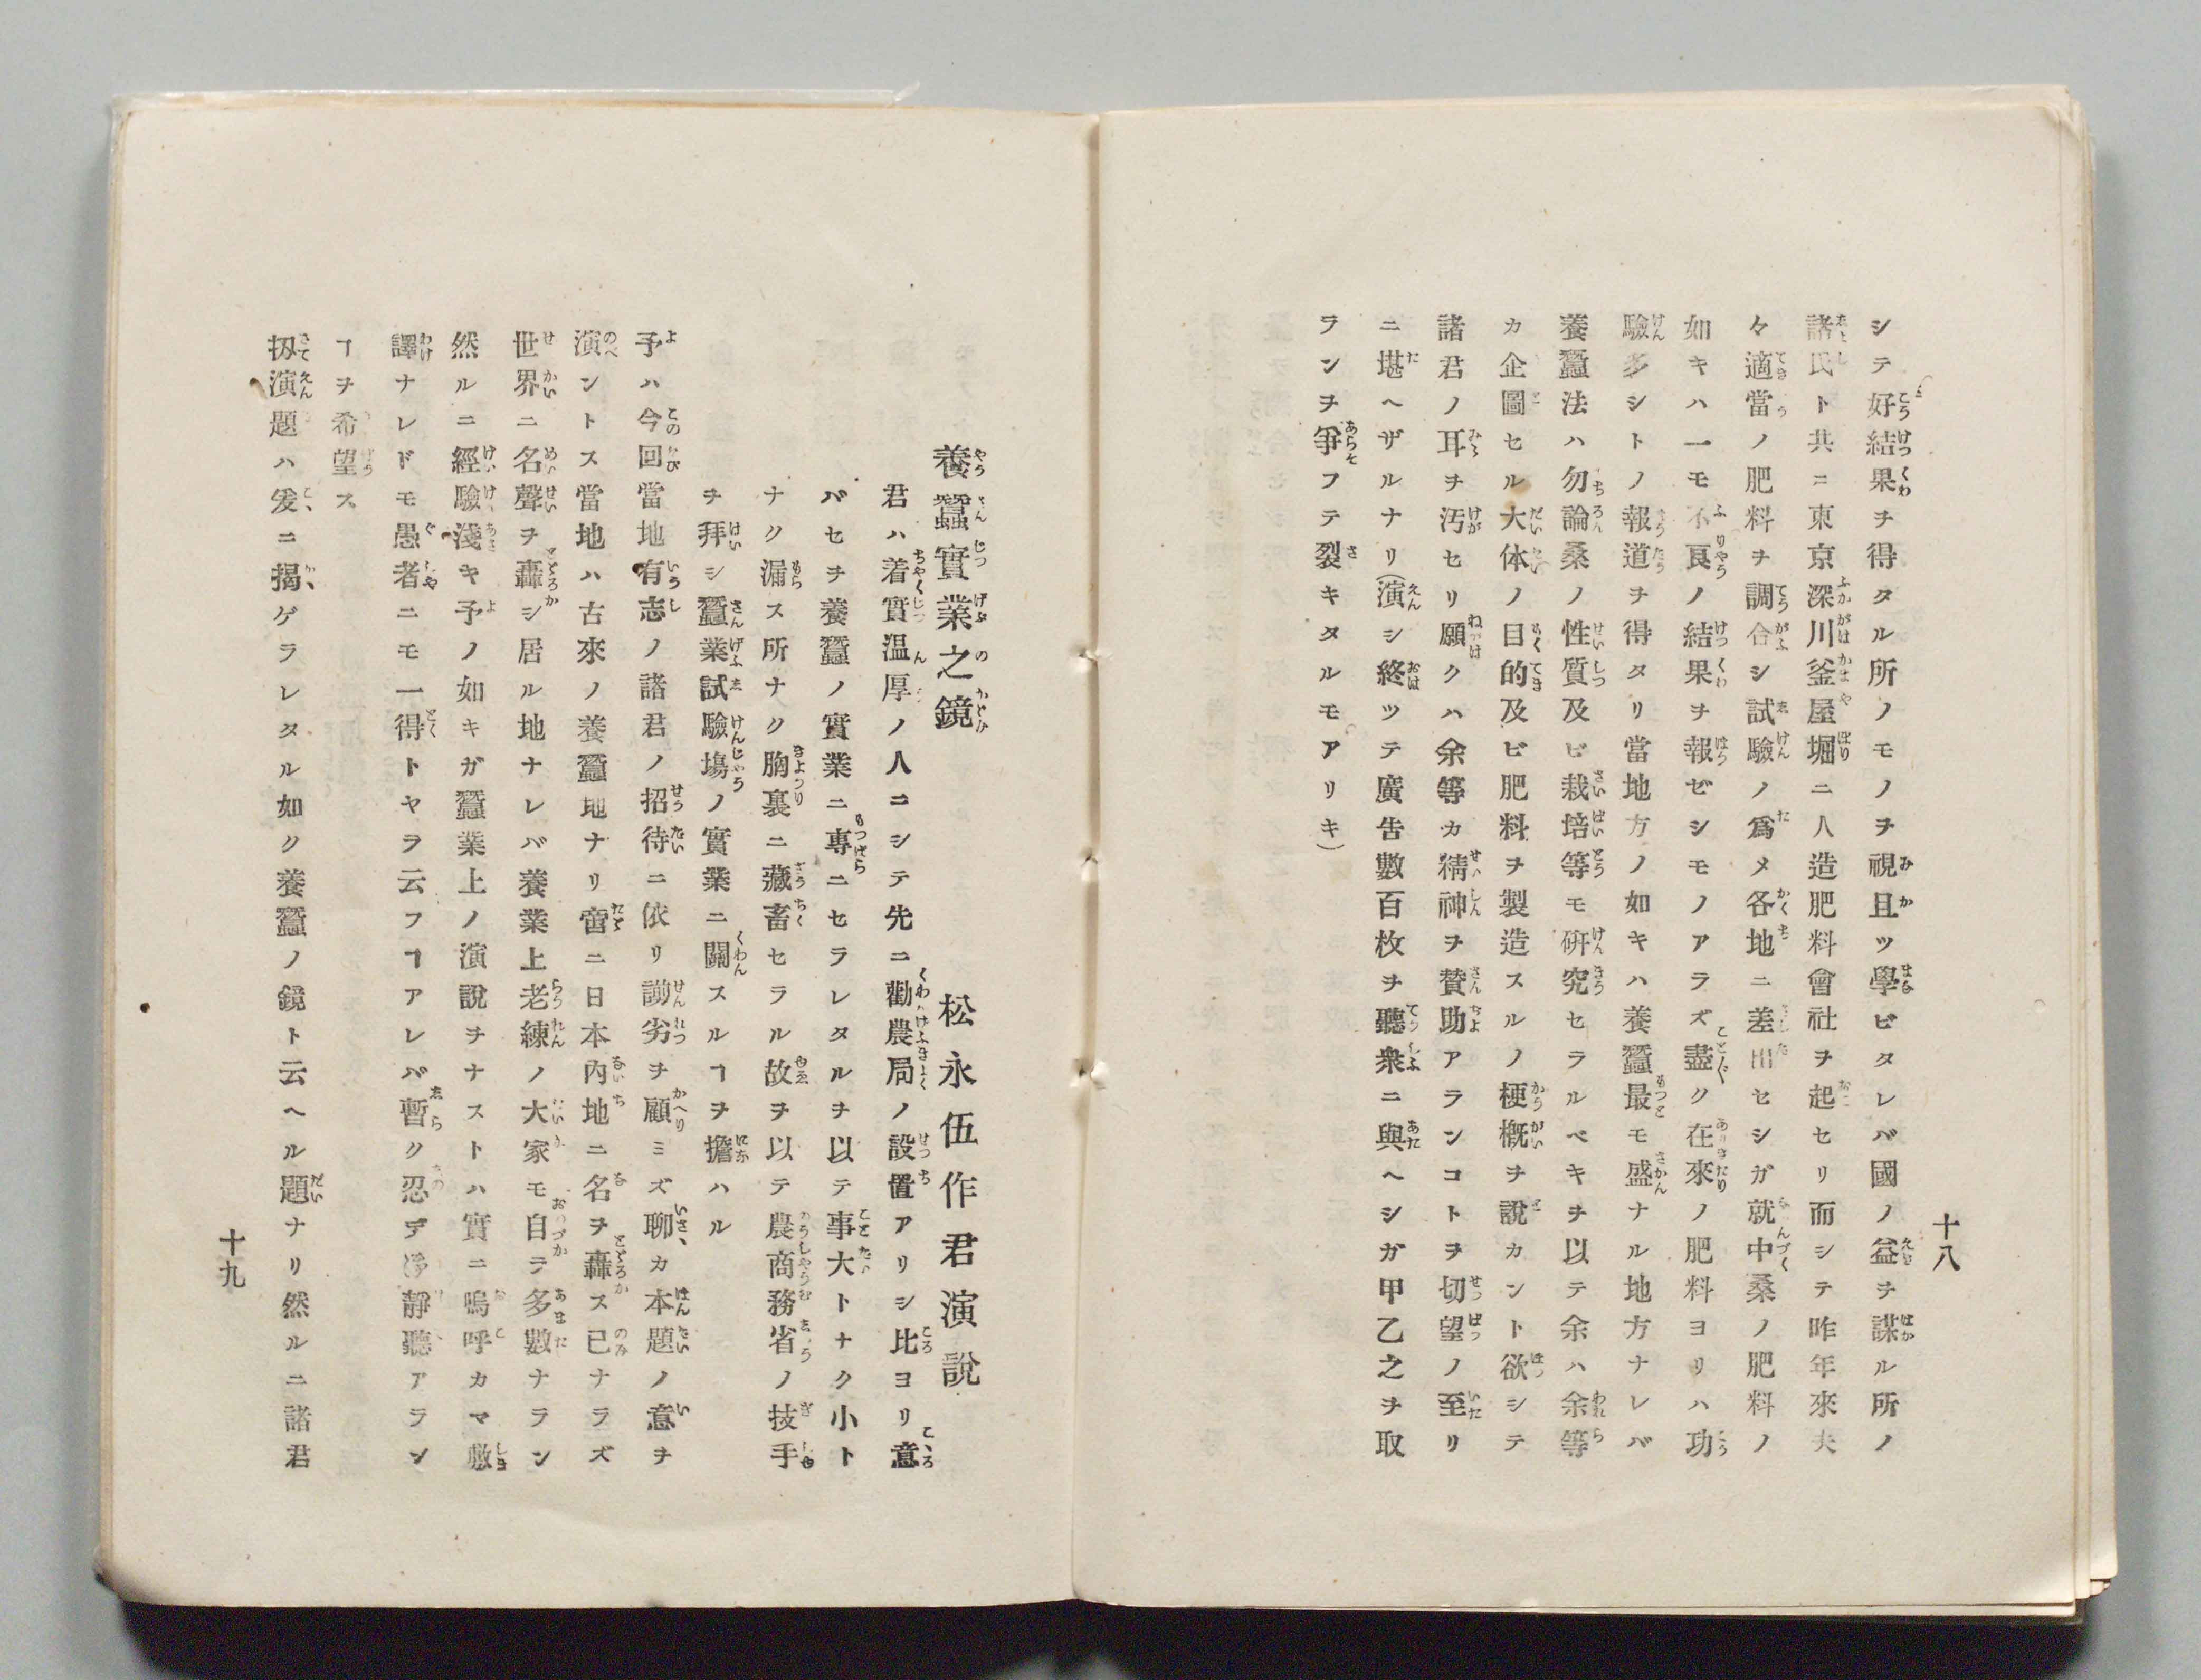 十八
シテ好結果ヲ得タル所ノモノヲ視且ツ學ビタレバ國ノ益ヲ謀ル所ノ
諸氏ト共ニ東京深川釜屋堀ニ人造肥料會社ヲ起セリ而シテ昨年來夫
々適當ノ肥料ヲ調合シ試驗ノ爲メ各地ニ差出セシガ就中桑ノ肥料ノ
如キハ一モ不良ノ結果ヲ報ゼシモノアラズ盡ク在來ノ肥料ヨリハ功
驗多シトノ報道ヲ得タリ當地方ノ如キハ養蠶最モ盛ナル地方ナレバ
養蠶法ハ勿論桑ノ性質及ビ栽培等モ硏究セラルベキヲ以テ余ハ余等
カ企圖セル大体ノ目的及ビ肥料ヲ製造スルノ梗槪ヲ說カント欲シテ
諸君ノ耳ヲ汚セリ願クハ余等カ精神ヲ賛助アランコトヲ切望ノ至リ
ニ堪ヘザルナリ(演シ終ツテ廣告數百枚ヲ聽衆ニ與ヘシガ甲乙之ヲ取
ランヲ爭フテ裂キタルモアリキ)
養蠶實業之鏡
松永伍作君演說
君ハ着實温厚ノ人ニシテ先ニ勸農局ノ設置アリシ比ヨリ意
バセヲ養蠶ノ實業ニ專ニセラレタルヲ以テ事大トナク小ト
ナク漏ス所ナク胸裏ニ藏畜セラル故ヲ以テ農商務省ノ技手
ヲ拜シ蠶業試驗塲ノ實業ニ關スルヿヲ擔ハル
予ハ今回當地有志ノ諸君ノ招待ニ依リ譾劣ヲ顧ミズ聊カ本題ノ意ヲ
演ントス當地ハ古來ノ養蠶地ナリ啻ニ日本內地ニ名ヲ轟ス已ナラズ
世界ニ名聲ヲ轟シ居ル地ナレバ養業上老練ノ大家モ自ラ多數ナラン
然ルニ經驗淺キ予ノ如キガ蠶業上ノ演說ヲナストハ實ニ嗚呼カマ敷
譯ナレドモ愚者ニモ一得トヤラ云フヿアレバ暫ク忍デ淨靜聽アラン
ヿヲ希望ス
扨演題ハ爰ニ揭ゲラレタル如ク養蠶ノ鏡ト云ヘル題ナリ然ルニ諸君
十九